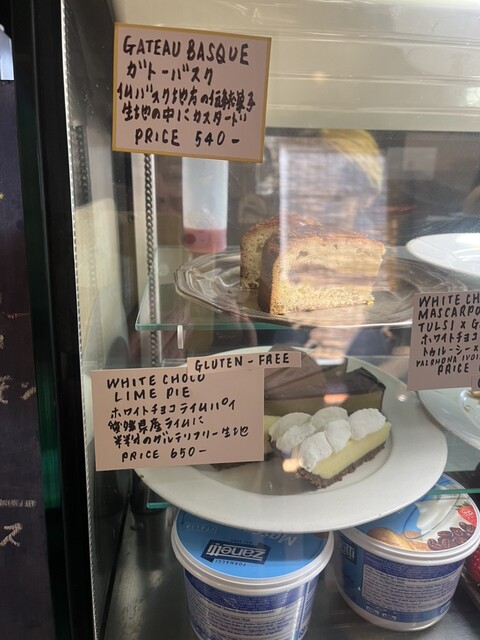 GATEAU BASQUE
ガトーバスク
仏バスク地方の伝統菓子
生地の中にカスタード
PRICE 540-
GLUTEN-FREE
WHITE CHOCO
LIME PIE
ホワイトチョコライムパイ
愛媛県産ライムに
米粉のグルテンフリー生地
PRICE 650-
WHITE CH
MASCARPO
TULSI x G
ホワイトチョコ
トゥルーシー
VALRHONA IVOI
PRICE
zanetti